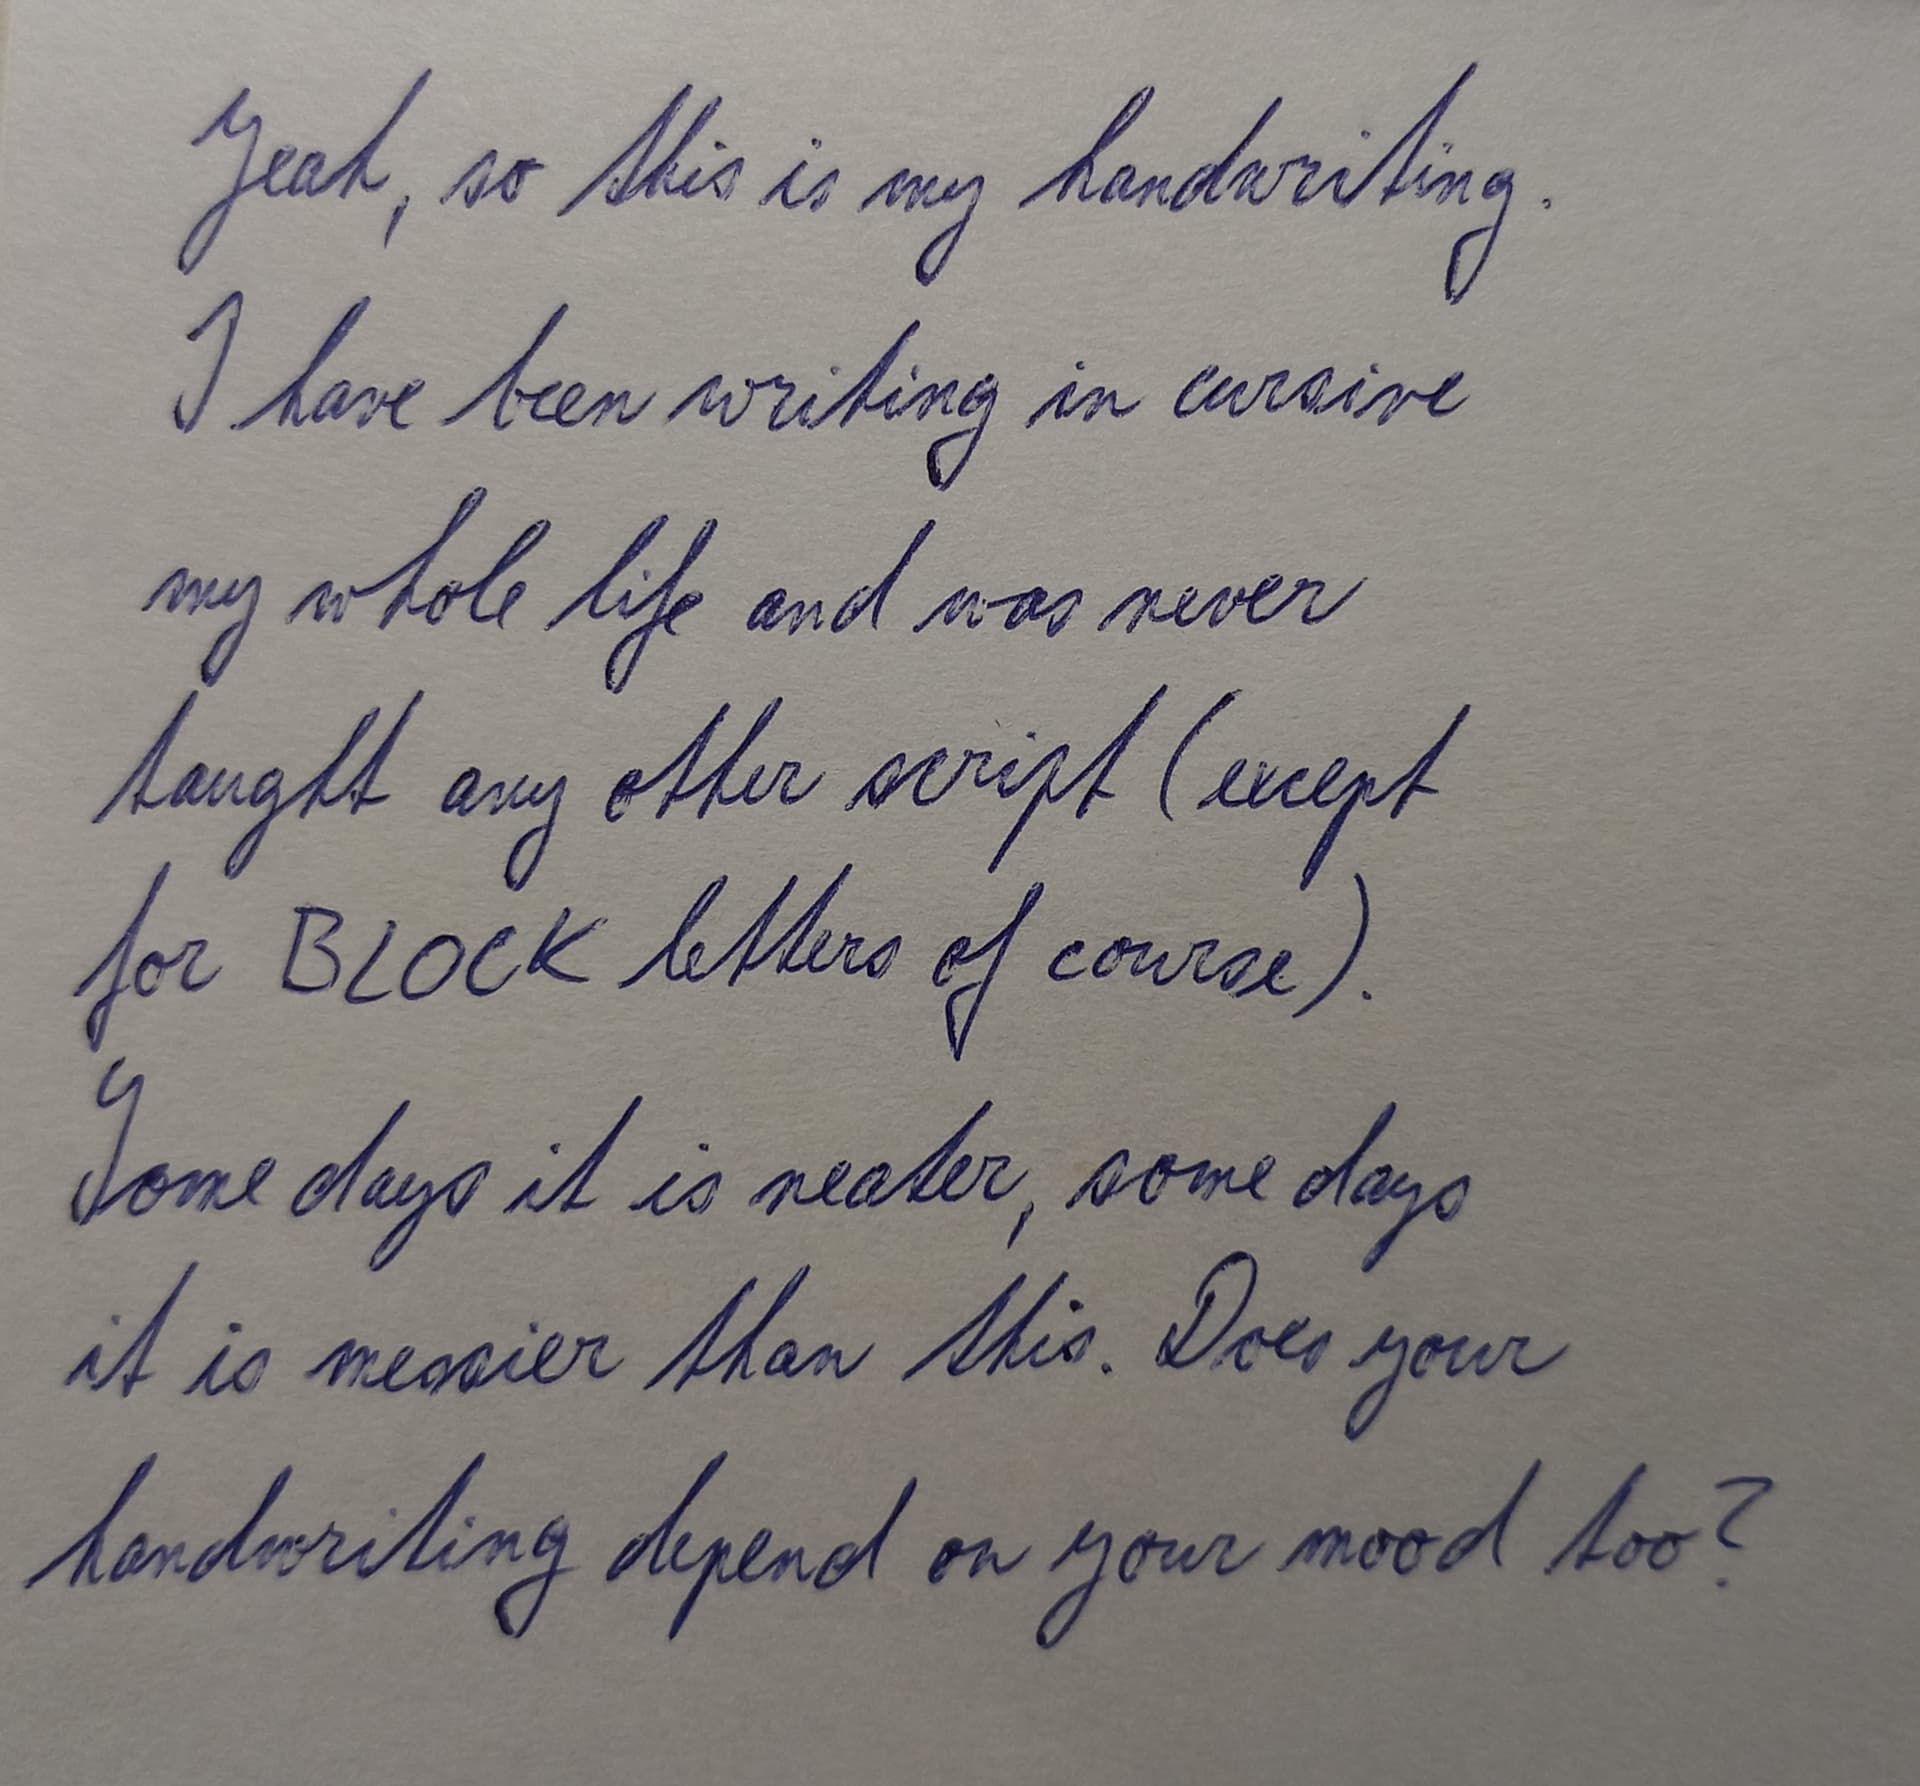 Yeah, so this is my handwriting.
I have been writing in cursive
my whole life and was never
taught any other script (except
for BLOCK letters of course).
Some days it is neater, some days
it is messier than this. Does your
handwriting depend on your mood too?